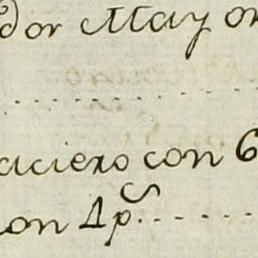 dor Mayor
aciero con 6
con 4 p.s